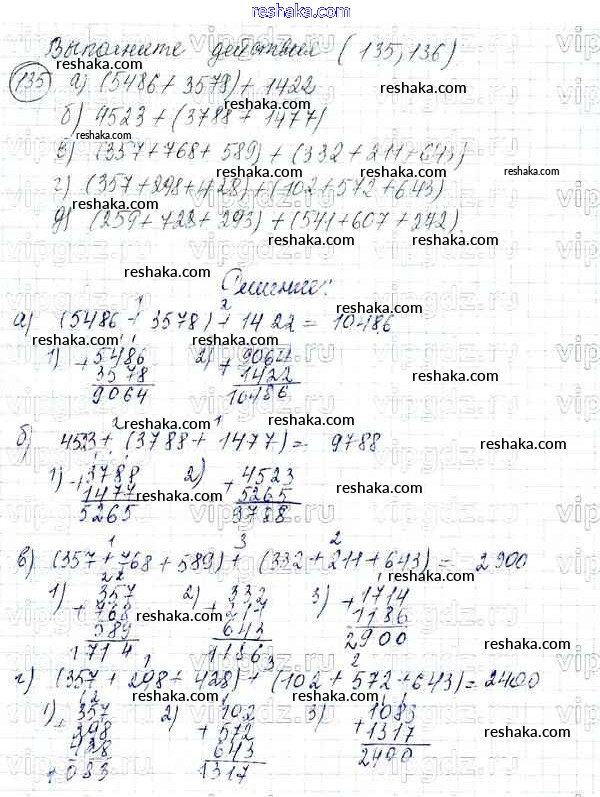 reshaka.com
Выполните действия (135,136)
135 а) (5486 + 3578) + 1422
б) 4523 + (3788 + 1477)
в) (357+768+ 589) + (332 + 211+643)
г) (357 +298+428) +(102+572 +643)
д) (259+ 728+ 293) + (541+607 +242).
Решение:
1 2
а) (5486 + 3578) + 1422 = 10486
1) + 5486 2) + 9064
3578 1422
9064 10486
2 1
б) 4523 + (3788 + 1477) = 9788
1) + 3788 2) + 4523
1477 5265
5265 9788
1 3 2
в) (357 + 768 + 589) + (332 + 211 + 643) = 2900
22
1) 357 2) 332 3) + 1714
+ 768 + 211 1186
589 643 2900
1714 1186
1 3 2
г) (357 + 298 + 428) + (102 + 572 + 643) = 2400
1 2
1) + 357 2) 102 3) 1083
298 + 572 + 1317
428 643 2400
1083 1317